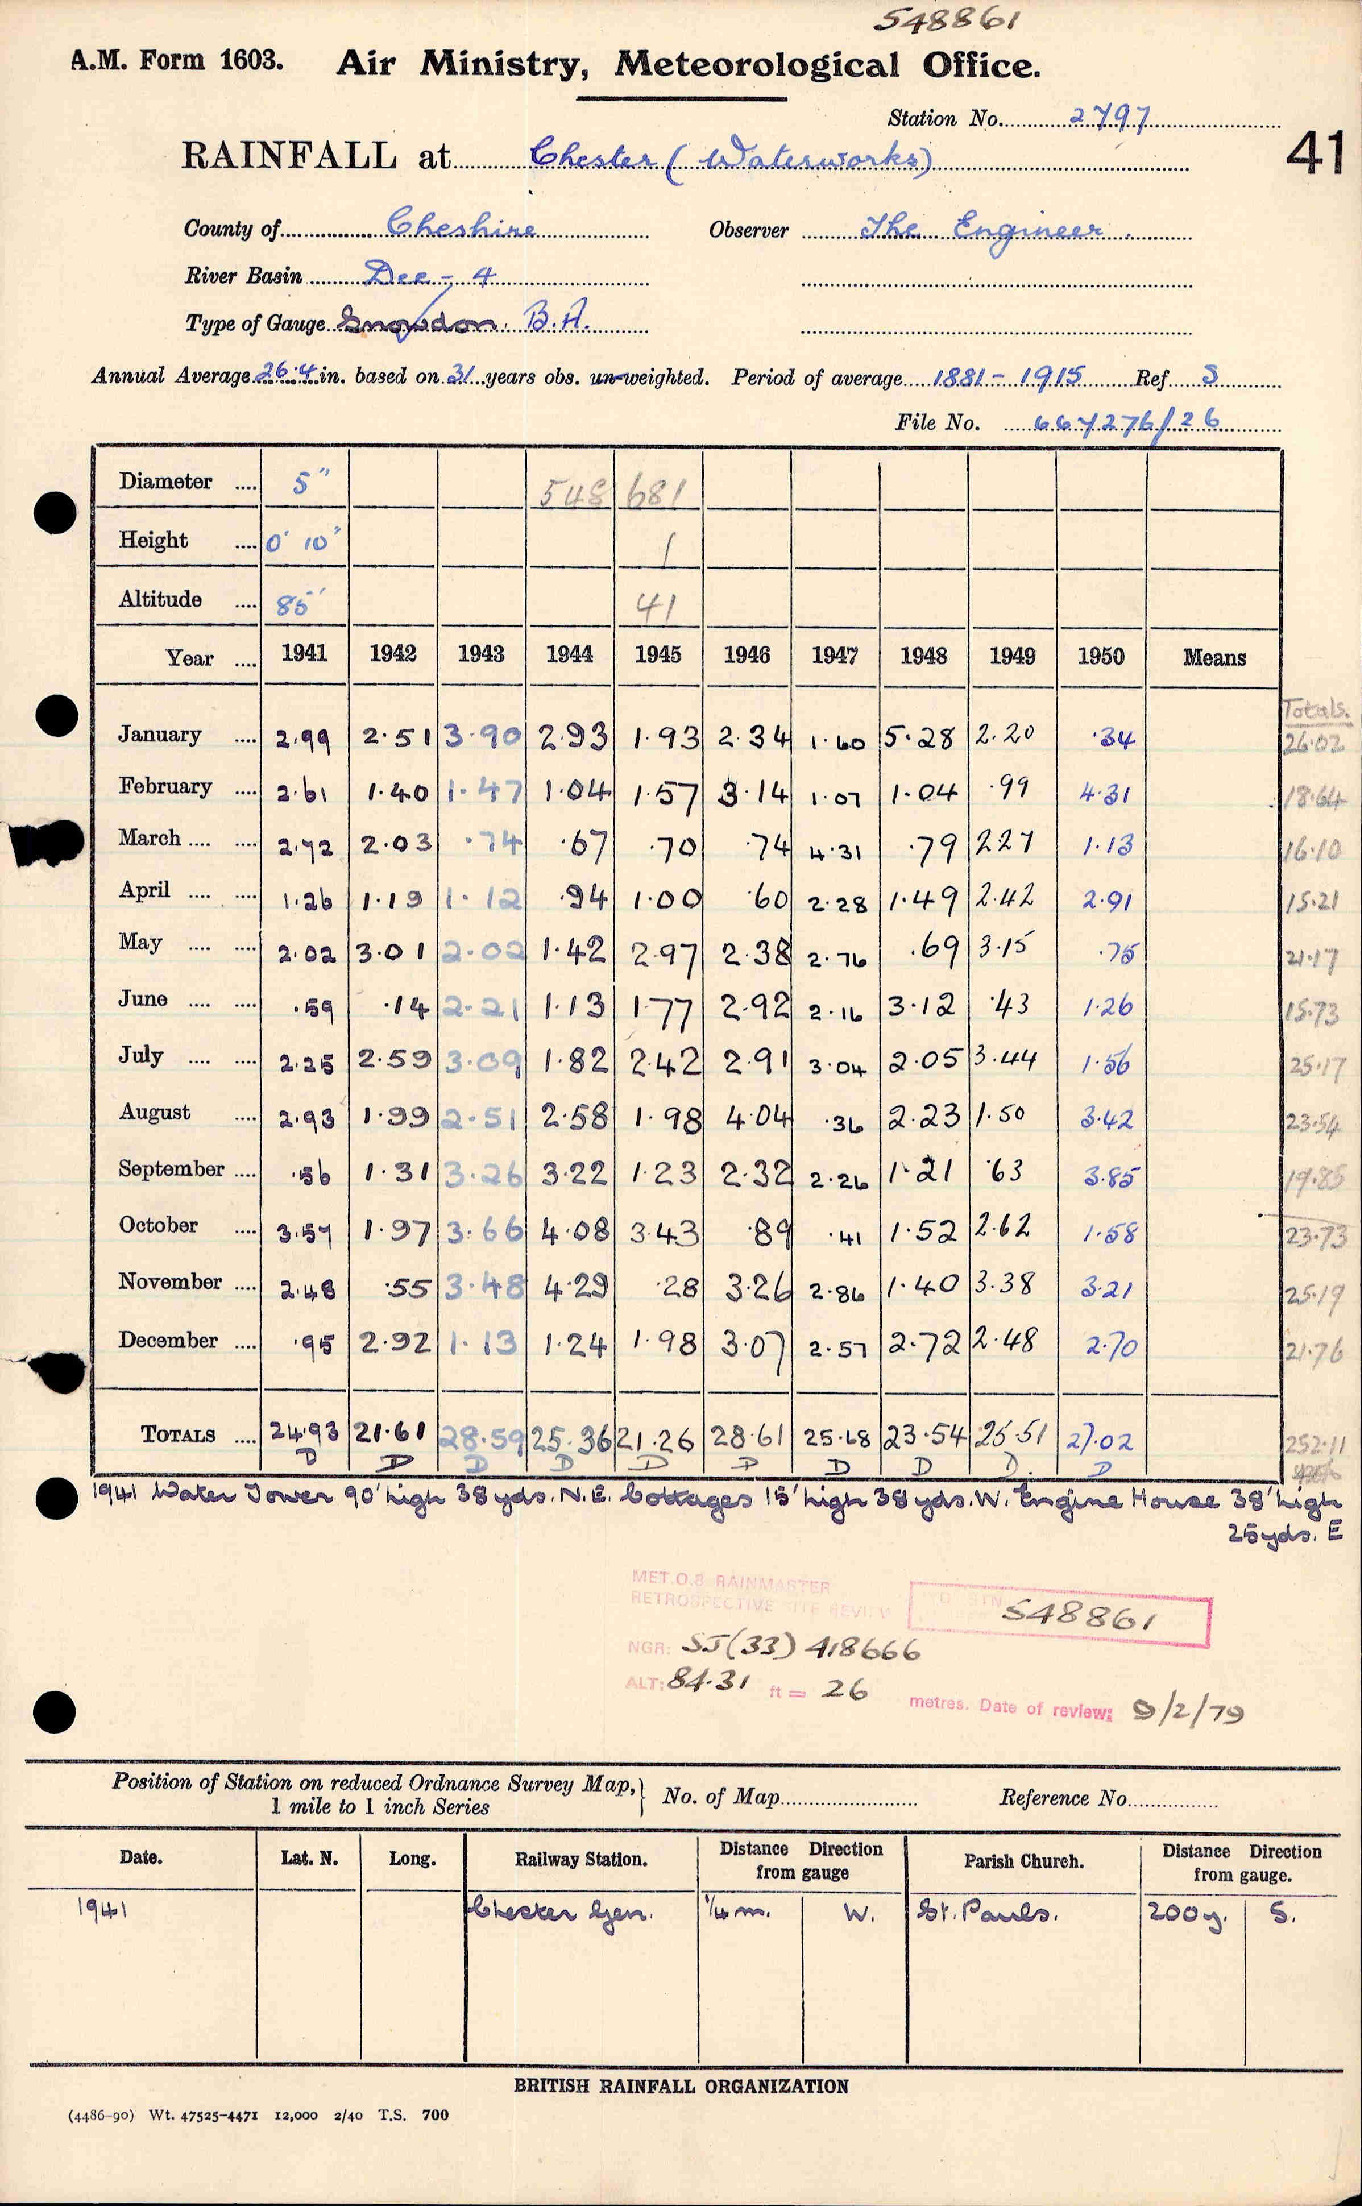 548861
A.M. Form 1603. Air Ministry, Meteorological Office.
Station No. 2797
41
RAINFALL at Chester (Waterworks)
County of Cheshire Observer The Engineer.
River Basin Dee - 4
Type of Gauge Snowdon. B.A.
Annual Average 26.4 in. based on 31 years obs. un-weighted. Period of average 1881 - 1915 Ref S
File No. 667276/26
Diameter .... 5" 548 681
Height .... 0' 10" 1
Altitude .... 85' 41
Year .... 1941 1942 1943 1944 1945 1946 1947 1948 1949 1950 Means
Totals.
January .... 2.99 2.51 3.90 2.93 1.93 2.34 1.60 5.28 2.20 .34 26.02
February .... 2.61 1.40 1.47 1.04 1.57 3.14 1.07 1.04 .99 4.31 18.64
March .... .... 2.72 2.03 .74 .67 .70 .74 4.31 .79 2.27 1.13 16.10
April .... .... 1.26 1.19 1.12 .94 1.00 .60 2.28 1.49 2.42 2.91 15.21
May .... .... 2.02 3.01 2.02 1.42 2.97 2.38 2.76 .69 3.15 .75 21.17
June .... .... .59 .14 2.21 1.13 1.77 2.92 2.16 3.12 .43 1.26 15.73
July .... .... 2.25 2.59 3.09 1.82 2.42 2.91 3.04 2.05 3.44 1.56 25.17
August .... 2.93 1.99 2.51 2.58 1.98 4.04 .36 2.23 1.50 3.42 23.54
September .... .56 1.31 3.26 3.22 1.23 2.32 2.26 1.21 .63 3.85 19.85
October .... 3.57 1.97 3.66 4.08 3.43 .89 .41 1.52 2.62 1.58 23.73
November .... 2.48 .55 3.48 4.29 .28 3.26 2.86 1.40 3.38 3.21 25.19
December .... .95 2.92 1.13 1.24 1.98 3.07 2.57 2.72 2.48 2.70 21.76
TOTALS .... 24.93 21.61 28.59 25.36 21.26 28.61 25.68 23.54 25.51 27.02 252.11
D D D D D D D D D. D
1941 Water Tower 90' high 38 yds. N.E. Cottages 15' high 38 yds. W. Engine House 38' high
25 yds. E
MET.O.8 RAINMASTER
RETROSPECTIVE SITE REVIEW
STN 548861
NGR: SJ(33) 418666
ALT: 84.31 ft = 26 metres. Date of review: 9/2/79
Position of Station on reduced Ordnance Survey Map, } No. of Map Reference No.
1 mile to 1 inch Series
Date. Lat. N. Long. Railway Station. Distance Direction from gauge Parish Church. Distance Direction from gauge.
1941 Chester Gen. 1/4 m. W. St. Pauls. 200 y. S.
BRITISH RAINFALL ORGANIZATION
(4486-90) Wt. 47525-4471 12,000 2/40 T.S. 700